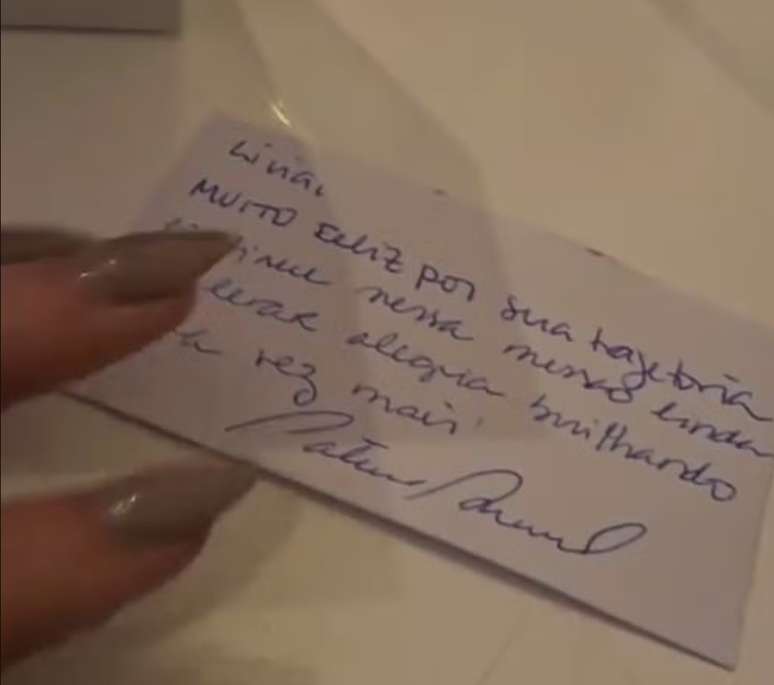 Livia,
MUITO FELIZ por sua trajetória
tinue nessa missão linda
levar alegria brilhando
vez mais!